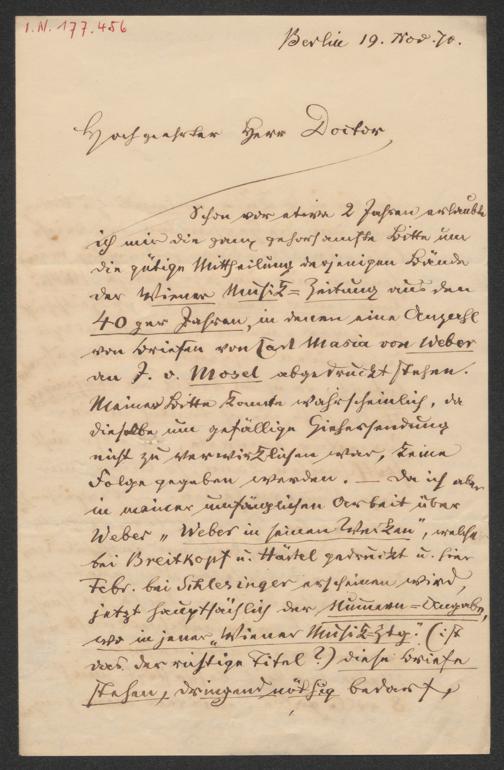 I.N. 177.456
Berlin 19. Nov. 70.
Hochgeehrter Herr Doctor
Schon vor etwa 2 Jahren erlaubte
ich mir die ganz gehorsamste Bitte um
die gütige Mittheilung derjenigen Bände
der Wiener Musik=Zeitung aus den
40ger Jahren, in denen eine Anzahl
von Briefen von Carl Maria von Weber
an J. v. Mosel abgedruckt stehen.
Meiner Bitte konnte wahrscheinlich, da
dieselbe um gefällige Hiehersendung
nicht zu verwirklichen war, keine
Folge gegeben werden. — Da ich aber
in meiner umfänglichen Arbeit über
Weber „Weber in seinen Werken", welche
bei Breitkopf u. Härtel gedruckt u. hier
Febr. bei Schlesinger erscheinen wird,
jetzt hauptsächlich der Nummern=Angabe,
wo in jener „Wiener Musik=Ztg." (ist
das der richtige Titel?) diese Briefe
stehen, dringend nöthig bedarf,